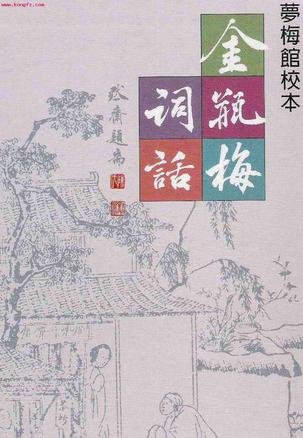 www.kongfz.com
夢梅館校本
金瓶梅
词話